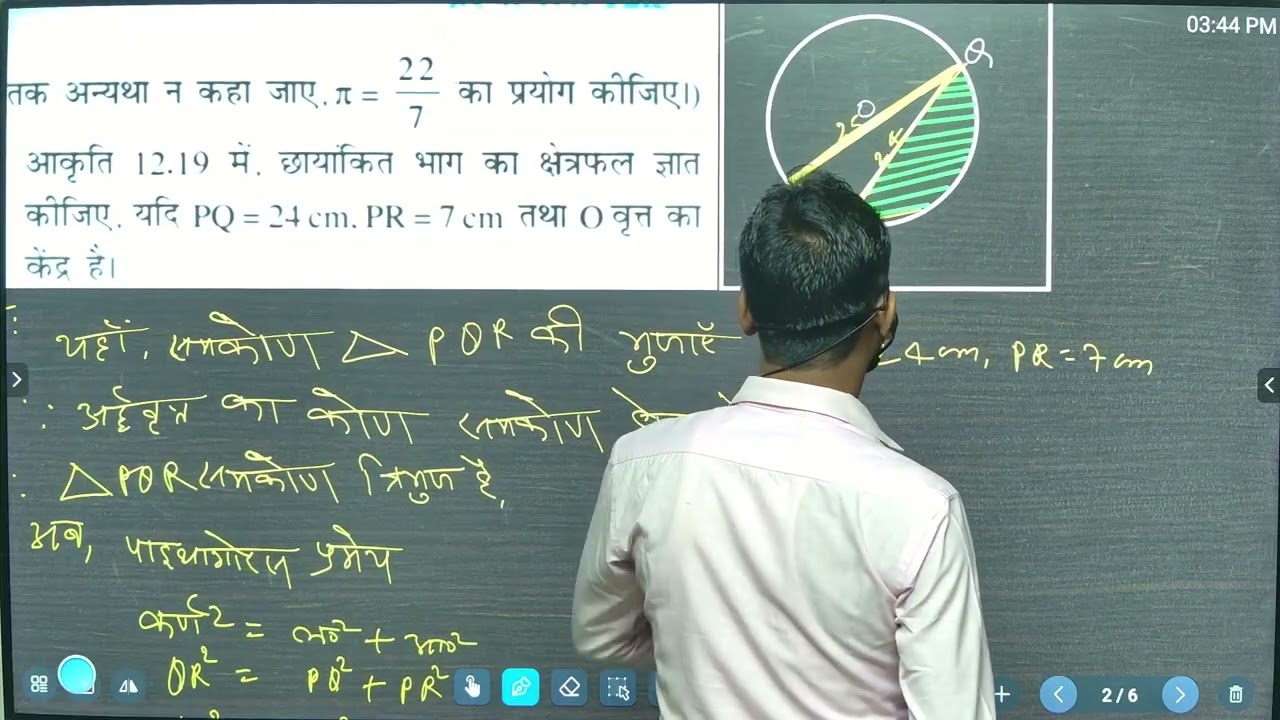 03:44 PM
तक अन्यथा न कहा जाए, π = 22/7 का प्रयोग कीजिए।)
आकृति 12.19 में, छायांकित भाग का क्षेत्रफल ज्ञात
कीजिए, यदि PQ = 24 cm, PR = 7 cm तथा O वृत्त का
केंद्र है।
Q
O
25
24
यहाँ, समकोण △ PQR की भुजाएँ 4 cm, PR = 7 cm
∵ अर्द्धवृत्त का कोण समकोण
∴ △PQR समकोण त्रिभुज है,
अब, पाइथागोरस प्रमेय
कर्ण² = ल०² + आ०²
QR² = PQ² + PR²
2/6